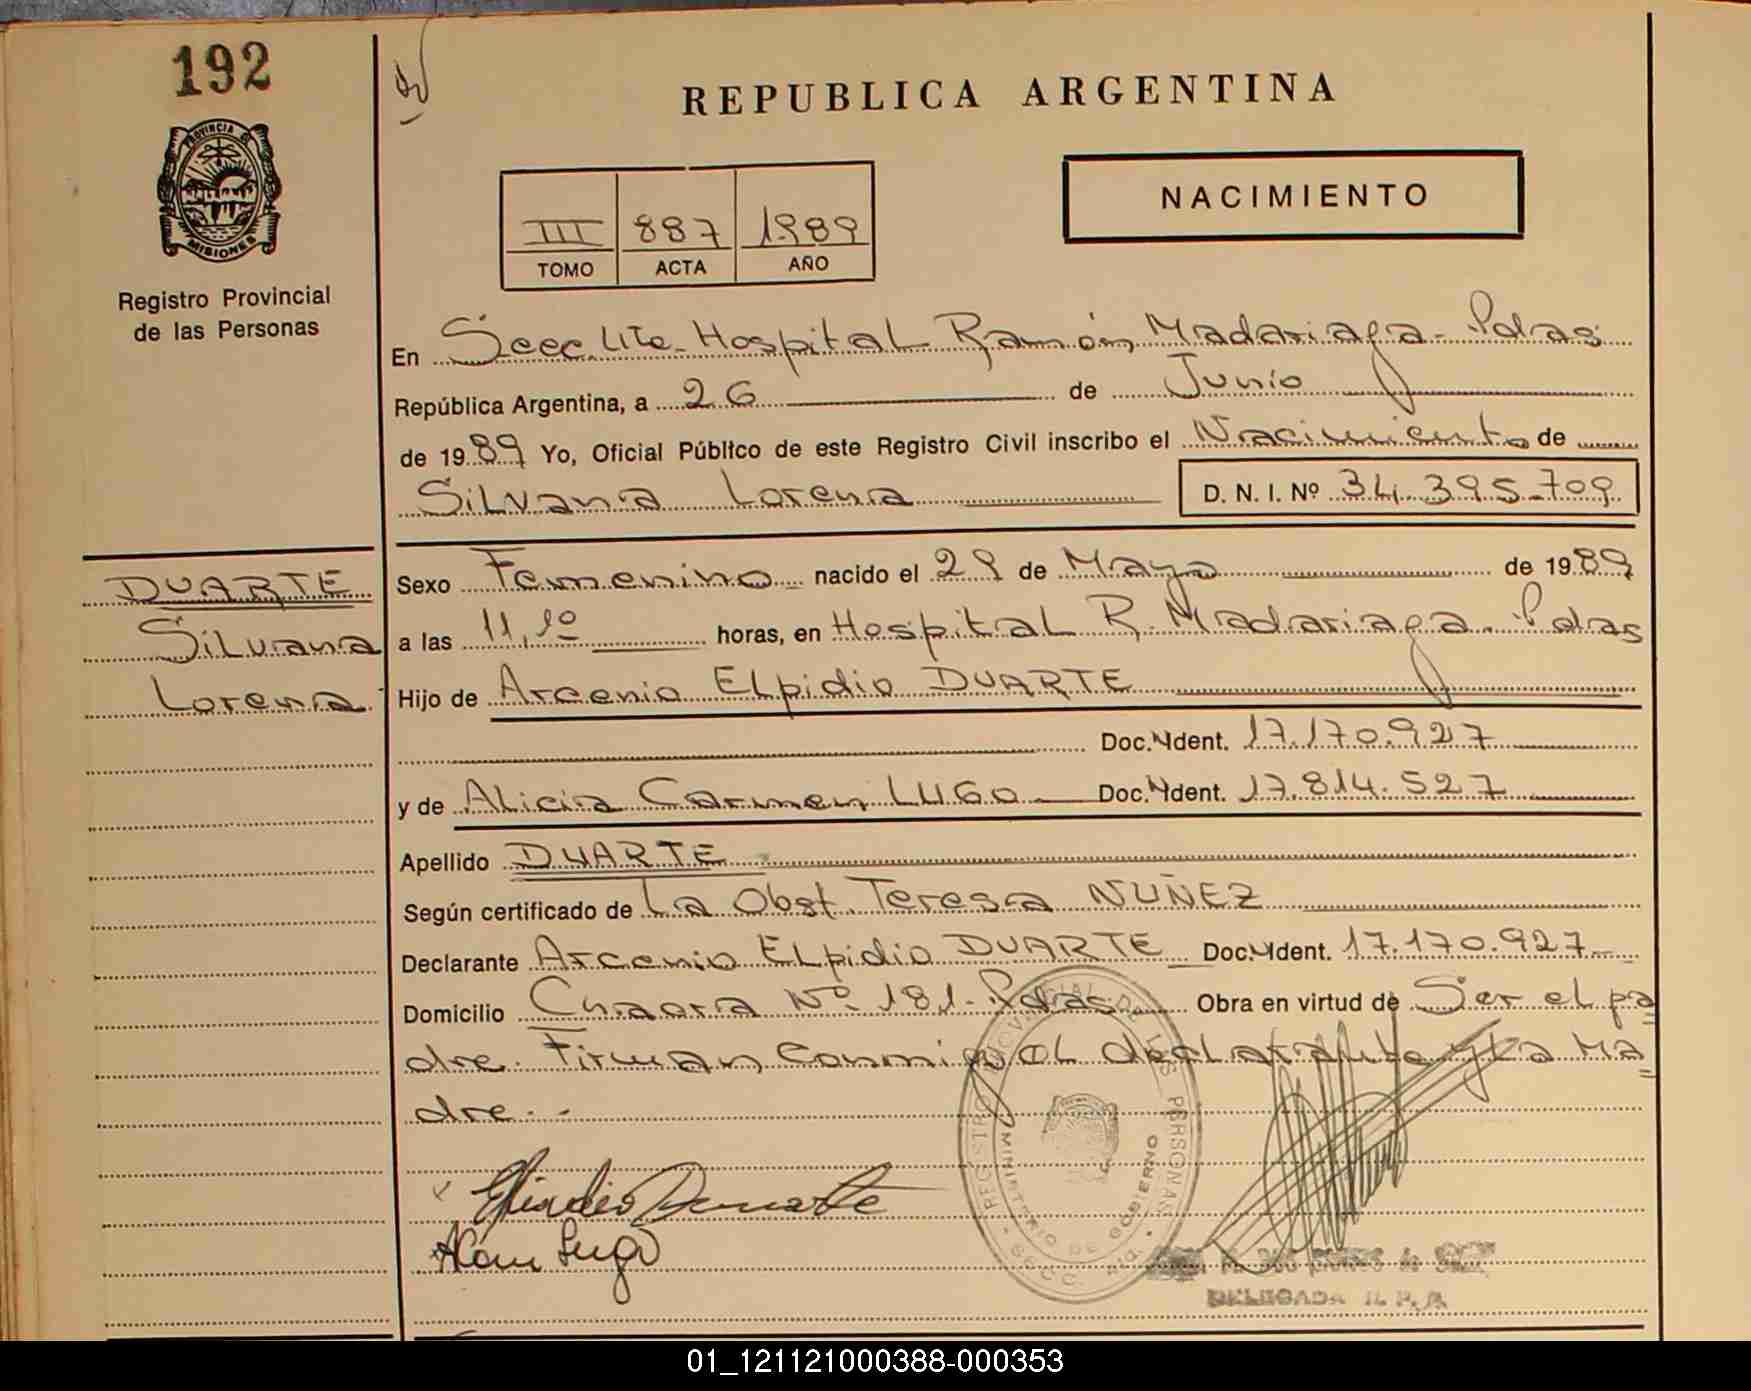 192
PROVINCIA DE
MISIONES
Registro Provincial
de las Personas
REPUBLICA ARGENTINA
III 887 1989
TOMO ACTA AÑO
NACIMIENTO
En Secc. Hospital Ramón Madariaga - Pdas
República Argentina, a 26 de Junio
de 1989 Yo, Oficial Público de este Registro Civil inscribo el Nacimiento de
Silvana Lorena D. N. I. Nº 34.395.709
DUARTE
Silvana
Lorena
Sexo Femenino nacido el 29 de Mayo de 1989
a las 11,10 horas, en Hospital R. Madariaga - Pdas
Hijo de Arcenio Elpidio DUARTE
Doc. Ident. 17.170.927
y de Alicia Carmen LUGO Doc. Ident. 17.814.527
Apellido DUARTE
Según certificado de La Obst. Teresa NUÑEZ
Declarante Arcenio Elpidio DUARTE Doc. Ident. 17.170.927
Domicilio Chacra Nº 181 - Pdas. Obra en virtud de Ser el pa
dre. Firman conmigo el declarante y la Ma
dre. -
Elpidio Duarte
Lugo
REGISTRO PROVINCIAL DE LAS PERSONAS
MINISTERIO DE GOBIERNO
DELEGADA R. P. P.
01_121121000388-000353